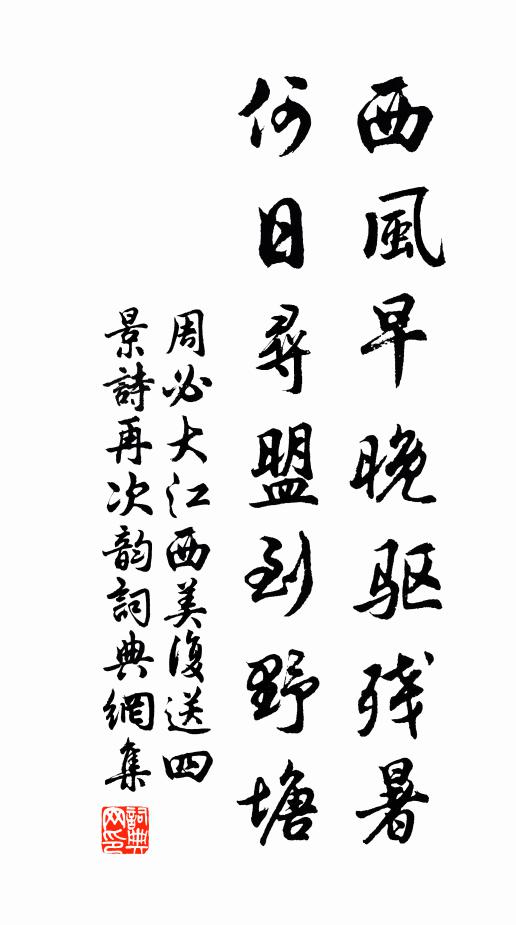 西風早晚驱残暑
何日尋盟到野塘
周必大江西美復送四
景詩再次韵詞典網集
詞典网印